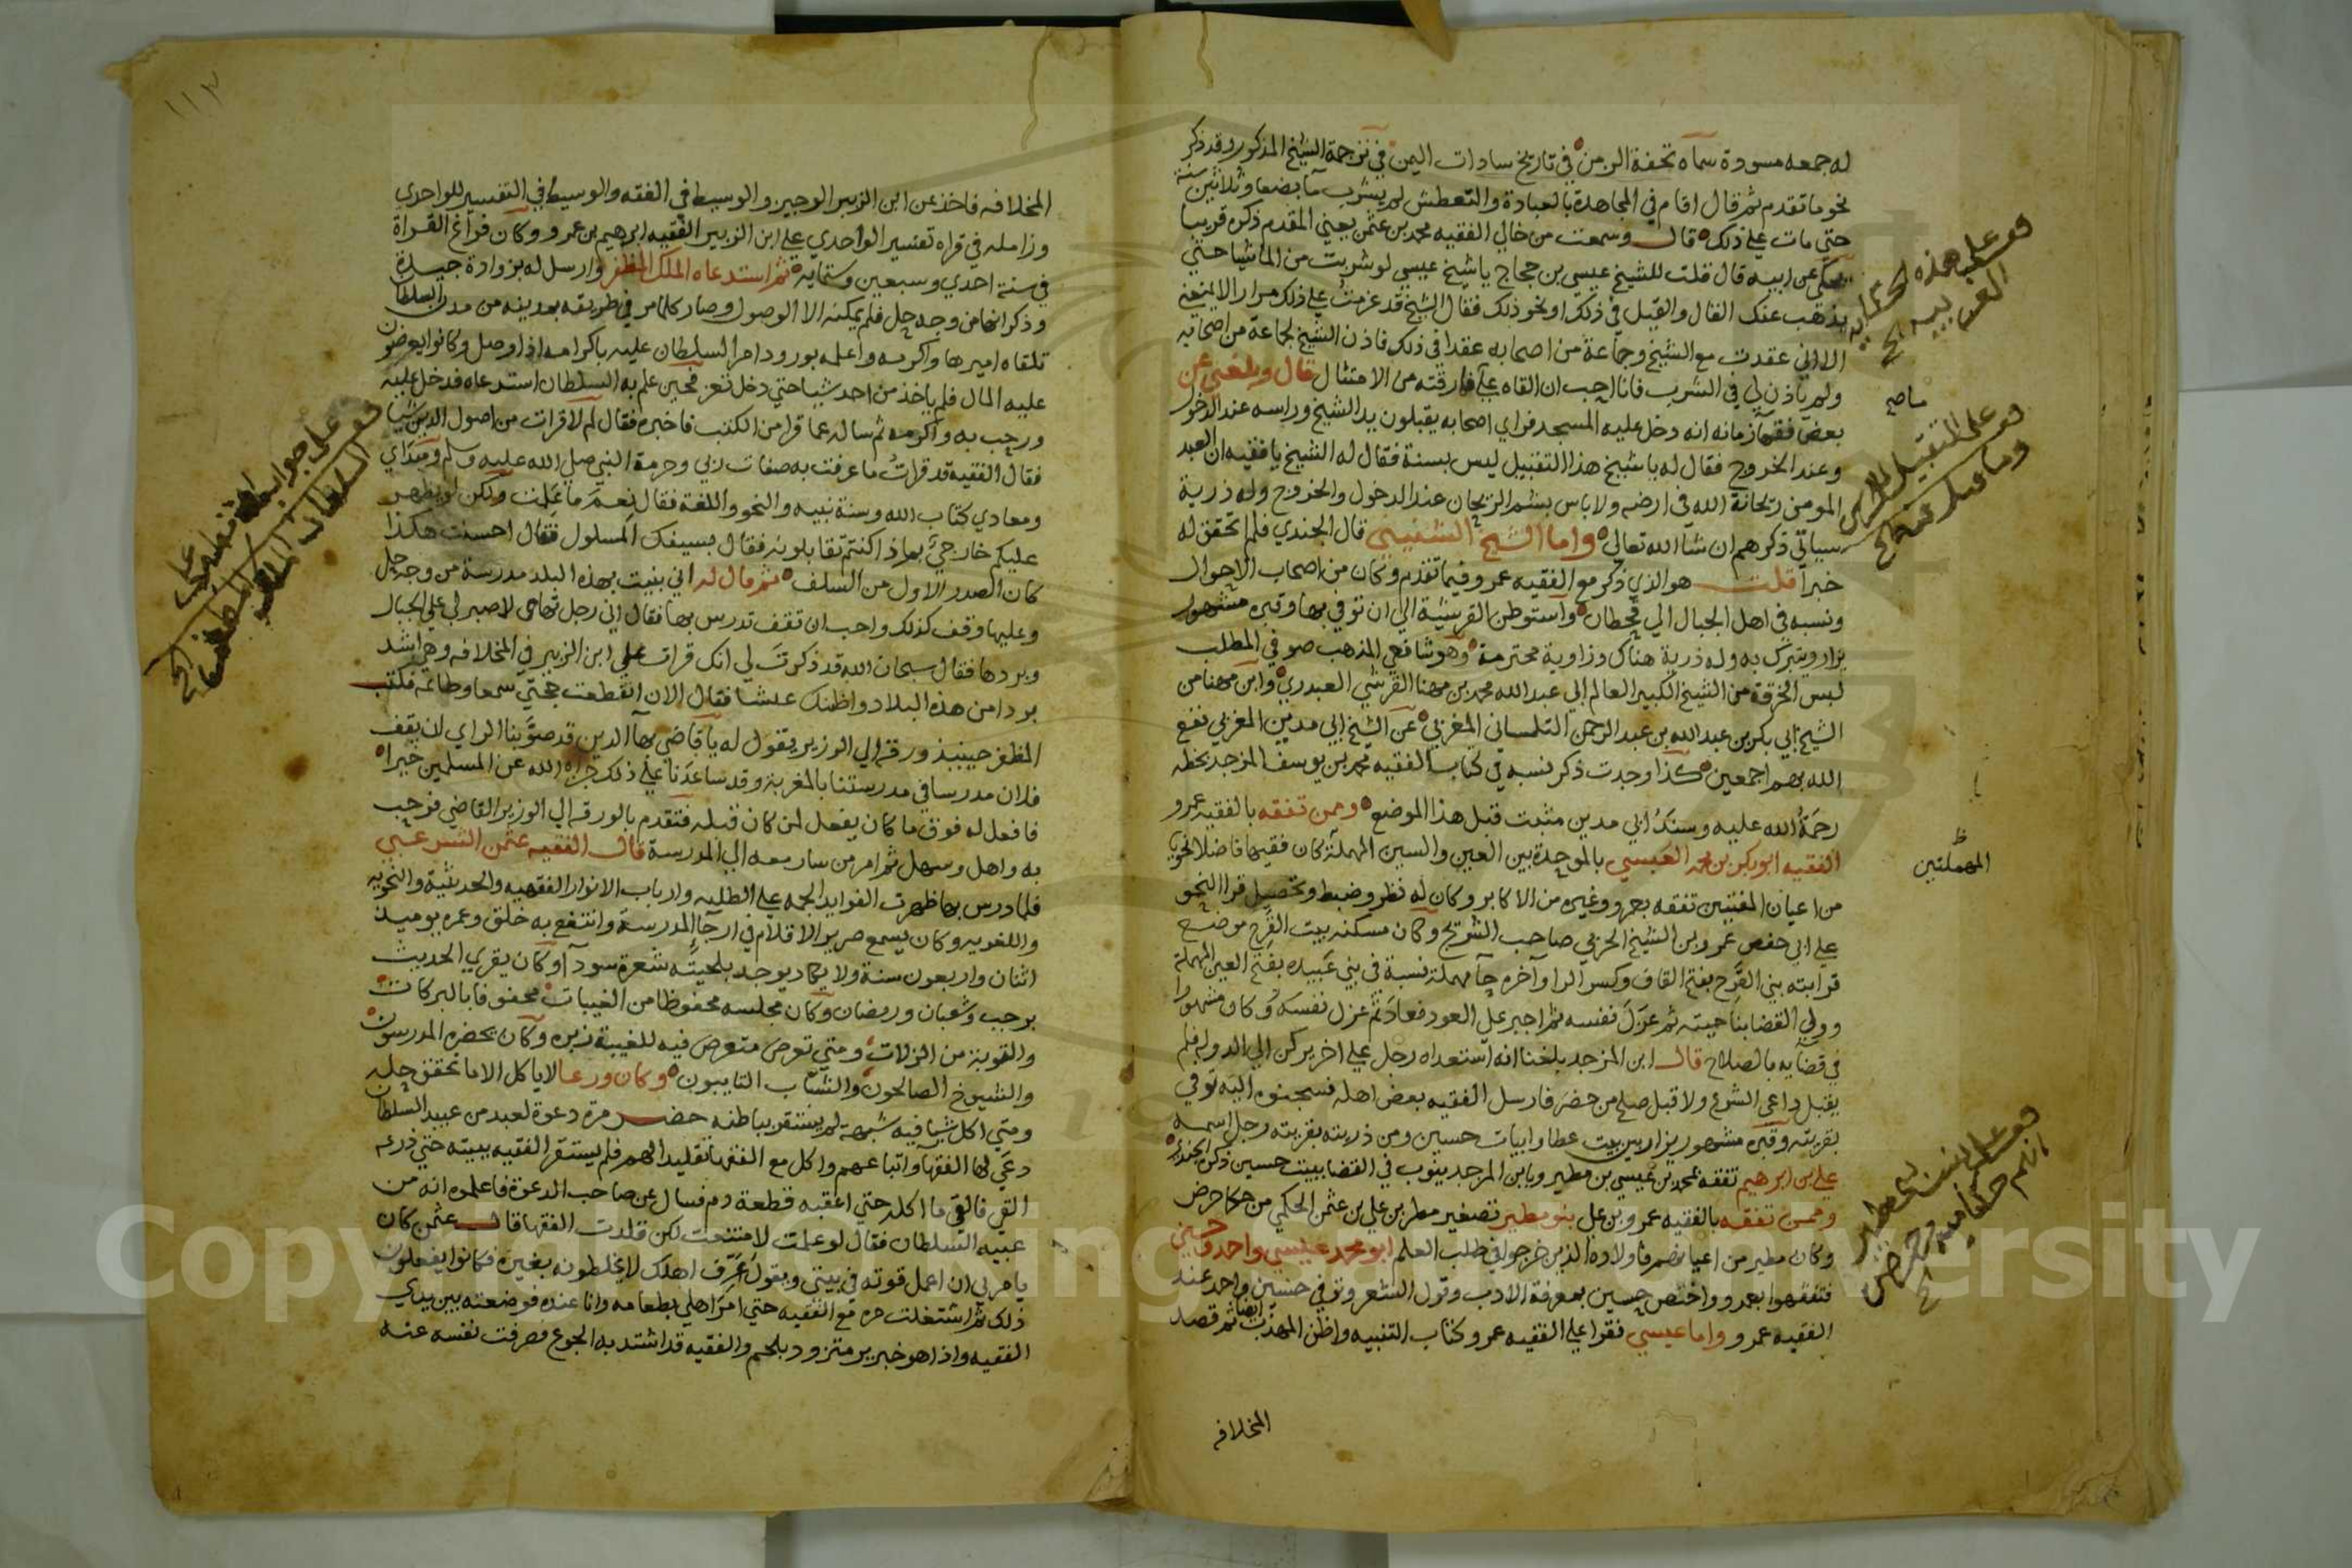 له جمعه مسودة سماه تحفة الزمن في تاريخ سادات اليمن في ترجمة الشيخ المذكور وقد ذكر
نحو ما تقدم ثم قال اقام في المجاهدة بالعبادة والتعطش لم يشرب ما بضعا وثلاثين سنة
حتي مات علي ذلك قال وسمعت من خالي الفقيه محمد بن عثمن يعني المقدم ذكره قريبا
يحكي عن ابيه قال قلت للشيخ عيسي بن حجاج يا شيخ عيسي لو شربت من الما شيا حتي
يذهب عنك القال والقيل في ذلك او نحو ذلك فقال الشيخ قد عزمت علي ذلك مرارا لا يمنعني
الا اني عقدت مع الشيخ وجماعة من اصحابه عقدا في ذلك فاذن الشيخ لجماعة من اصحابه
ولم ياذن لي في الشرب فانا احب ان القاه علي ما فارقته من الامتثال قال وبلغني عن
بعض فقها زمانه انه دخل عليه المسجد فراي اصحابه يقبلون يد الشيخ وراسه عند الدخول
وعند الخروج فقال له يا شيخ هذا التقبيل ليس بسنة فقال له الشيخ يا فقيه ان العبد
المومن ريحانة الله في ارضه ولا باس بشم الريحان عند الدخول والخروج وله ذرية
سياتي ذكرهم ان شا الله تعالي واما الشيخ الشنيني قال الجندي فلم اتحقق له
خبرا قلت هو الذي ذكر مع الفقيه عمرو فيما تقدم وكان من اصحاب الاحوال
ونسبه في اهل الجبال الي قحطان واستوطن القرشية الي ان توفي بها وقبره مشهور
يزار ويتبرك به وله ذرية هناك وزاوية محترمة وهو شافعي المذهب صوفي المطلب
لبس الخرقة من الشيخ الكبير العالم ابي عبد الله محمد بن مهنا القرشي العبدري وابن مهنا من
الشيخ ابي بكر بن عبد الله بن عبد الرحمن التلمساني المغربي عن الشيخ ابي مدين المغربي نفع
الله بهم اجمعين كذا وجدت ذكر نسبه في كتاب الفقيه محمد بن يوسف المزجد بخطه
رحمة الله عليه وسند ابي مدين مثبت قبل هذا الموضع وممن تفقه بالفقيه عمرو
الفقيه ابو بكر بن محمد العبسي بالموحدة بين العين والسين المهملة كان فقيها فاضلا نحويا
من اعيان المفتيين تفقه بعمرو وغيره من الاكابر وكان له نظر وضبط وتحصيل قرا النحو
علي ابي حفص عمرو بن الشيخ الحربي صاحب الشويح وكان مسكنه بيت القرح موضع
قرابته بني القرح بفتح القاف وكسر الرا واخره حا مهملة نسبة في بني عبيدة بفتح العين المهملة
وولي القضا بناحيته ثم عزل نفسه ثم اجبر علي العود فعاد ثم عزل نفسه وكان مشهورا
في قضايه بالصلاح قال ابن المزجد بلغنا انه استعداه رجل علي اخر يركن الي الدولة فلم
يقبل داعي الشرع ولا قبل صلح من حضر فارسل الفقيه بعض اهله فسجنوه اليه توفي
بقريته وقبره مشهور يزار بين بيت عطا وابيات حسين ومن ذريته بقريته رجل اسمه
علي بن ابرهيم تفقه بمحمد بن عيسي بن مطير وبابن المزجد ينوب في القضا ببيت حسين ذكره الجندي
وممن تفقه بالفقيه عمرو بن علي بنو مطير تصغير مطر بن علي بن عثمن الحكمي من حكما حرض
وكان مطير من اعيانهم فاولاده الذين خرجوا في طلب العلم ابو محمد عيسي واحد وحسين
فتفقهوا بعمرو واختص حسين بمعرفة الادب وقول الشعر وتوفي حسين واحد عند
الفقيه عمرو واما عيسي فقرا علي الفقيه عمرو كتاب التنبيه واظن المهذب ايضا ثم قصد
المخلافه
قف علي هذه الحكاية
ما صح
قف علي التقبيل
ظ
المهملتين
١١٢
المخلافه فاخذ عن ابن الزبير الوجيز والوسيط في الفقه والوسيط في التفسير للواحدي
وزامله في قراه تفسير الواحدي علي ابن الزبير الفقيه ابرهيم بن عمرو وكان فراغ القراة
في سنة احدي وسبعين وستمايه ثم استدعاه الملك المظفر وارسل له بزوادة جيدة
وذكر انها من وجه حل فلم يمكنه الا الوصول وصار كلما مر في طريقه بمدينه من مدن السلطان
تلقاه اميرها واكرمه واعلمه بورود امر السلطان عليه باكرامه اذا وصل وكانوا يعرضون
عليه المال فلم ياخذ من احد شيا حتي دخل تعز فحين علم به السلطان استدعاه فدخل عليه
ورحب به واكرمه ثم ساله عما قرا من الكتب فاخبره فقال لم لا قرات من اصول الدين شيا
فقال الفقيه قد قرات ما عرفت به صفات ربي وحرمة النبي صلي الله عليه وسلم ومبداي
ومعادي كتاب الله وسنة نبيه والنحو واللغة فقال نعم ما علمت ولكن لو يظهر
عليكم خارجي بماذا كنتم تقابلونه فقال بسيفك المسلول فقال احسنت هكذا
كان الصدر الاول من السلف ثم قال له اني بنيت بهذه البلد مدرسة من وجه حل
وعليها وقف كذلك واحب ان تقف تدرس بها فقال اني رجل تهامي لا صبر لي علي الجبال
وبردها فقال سبحان الله قد ذكرت لي انك قرات علي ابن الزبير في المخلافه وهي اشد
بردا من هذه البلاد واظنك عشا فقال الان انقطعت حجتي سمعا وطاعة فكتب
المظفر حينيذ ورقة الي الوزير يقول له يا قاضي بها الدين قد صوبنا الراي ان يقف
فلان مدرسا في مدرستنا بالمغربة وقد ساعدنا علي ذلك جزاه الله عن المسلمين خيرا
فافعل له فوق ما كان يفعل لمن كان قبله فتقدم بالورقة الي الوزير القاضي فرحب
به واهل وسهل ثم امر من سار معه الي المدرسة قال الفقيه عثمن الشرعبي
فلما درس بها ظهرت الفوايد الجمه علي الطلبه وارباب الانوار الفقهيه والحديثية والنحويه
واللغويه وكان يسمع صرير الاقلام في ارجا المدرسة وانتفع به خلق وعمره يوميذ
اثنان واربعون سنة ولا يكاد يوجد بلحيته شعرة سودا وكان يقري الحديث
برجب وشعبان ورمضان وكان مجلسه محفوظا من الغيبات محفوفا بالبركات
والقوبة من الزلات ومتي تعرض متعرض فيه للغيبة نبره وكان يحضره المدرسون
والشيوخ الصالحون والشباب التايبون وكان ورعا لا ياكل الا ما تحقق حله
ومتي اكل شيا فيه شبهة لم يستقر بباطنه حضر مرة دعوة لعبد من عبيد السلطان
دعي لها الفقها واتباعهم واكل مع الفقها تقليدا لهم فلم يستقر الفقيه ببيته حتي ذرعه
القي فالقي ما اكله حتي اعقبه قطعة دم فسال عن صاحب الدعوة فاعلموه انه من
عبيد السلطان فقال لو علمت لامتنعت لكن قلدت الفقها قال عثمن كان
يامرني ان اعمل قوته في بيتي ويقول عرف اهلك لا يخلطونه بغيره فكانوا يفعلون
ذلك ثم اشتغلت مرة مع الفقيه حتي امر اهلي بطعامه وانا عنده فوضعته بين يدي
الفقيه واذا هو خبز بر متزود بلحم والفقيه قد اشتد به الجوع فصرفت نفسه عنه
Copyright © King Saud University